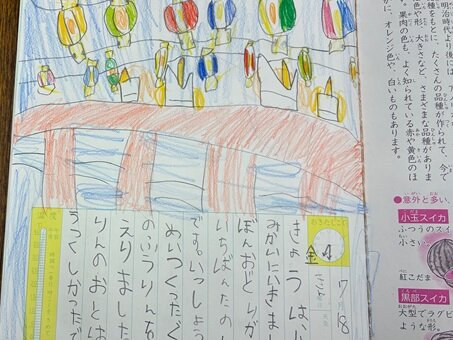 明治時代より後には、
種をもとに、たくさんの品種が作られて、今で
色や形、大きさなど、さまざまな品種がありま
果肉の色も、よく知られている赤や黄色のほ
に、オレンジ色や、白いものもあります。
●意外と多い
小玉スイカ
ふつうのスイ
小さい
紅こだま
黒部スイカ
大型でラグビ
ような形。
7月18
きょうは、
みかいにいきま
ぼんおどりが
いちばんたの
です。いっしょう
めいつくった
のふうりん
えりました
りんのおとは
うつくしかったで